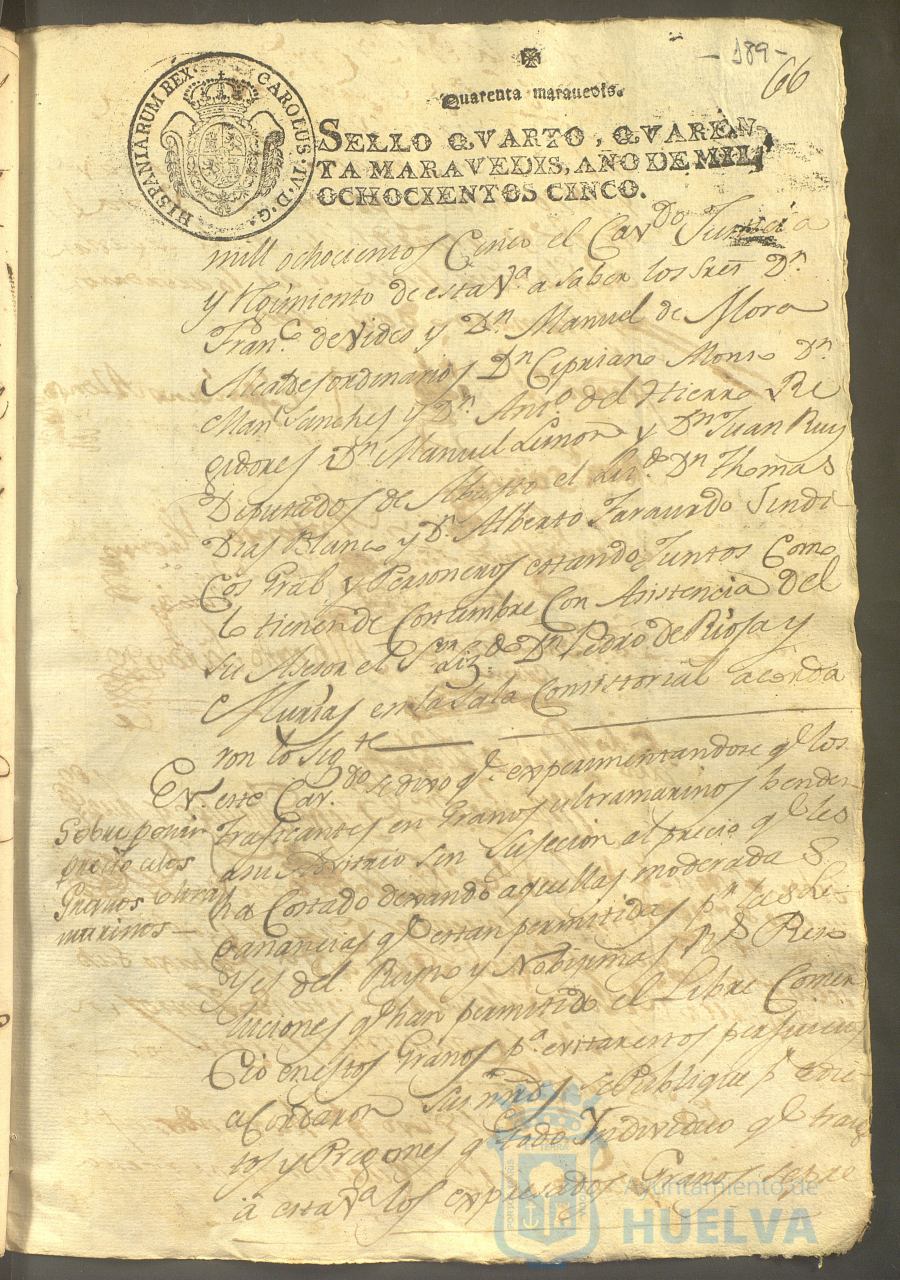 - 189 -
66
Quarenta maravedis.
HISPANIARUM REX · CAROLUS · IV · D · G ·
SELLO QVARTO, QVAREN
TA MARAVEDIS, AÑO DE MIL
OCHOCIENTOS CINCO.
mill ochocientos Cinco el Cav.do Justicia
y Rgimiento de esta V.a a saber los Sres D.n
Fran.co de Vides y D.n Manuel de Mora
Alcaldes ordinarios D.n Cipriano Monso D.n
Man.l Sanches y D.n Ant.o del Hierro Re
gidores D.n Manuel Limon y D.n Juan Ruiz
Diputados de Abasto el Liz.do D.n Thomas
Dias Blanco y D.n Alberto Faraurdo Sindi
cos Gral y Personeros estando Juntos Como
lo tienen de Costumbre Con Asistencia del
su Asesor el S.or Liz.do D.n Pedro de Riosa y
Murias en la Sala Consistorial acorda
ron lo sig.te
En este Cav.do se dixo q.e experimentandose q.e los
Sobre poner
precio a los
Granos ultra
marinos
traficantes en Granos ultramarinos benden
a su Advitrio sin Sujecion al precio q.e les
ha Costado dexando aquellas moderadas
ganancias q.e estan permitidas p.r las Le-
yes del Reyno y Nobisimas R.s Reso
luciones q.e han permitido el Libre Comer
Cio en estos Granos p.a evitar estos perjuicios
acordaron sus mrds se Publique p.r edic
tos y Pregones q.e todo Yndividuo q.e traiga
à esta V.a los expresados Granos
Ayuntamiento de
HUELVA